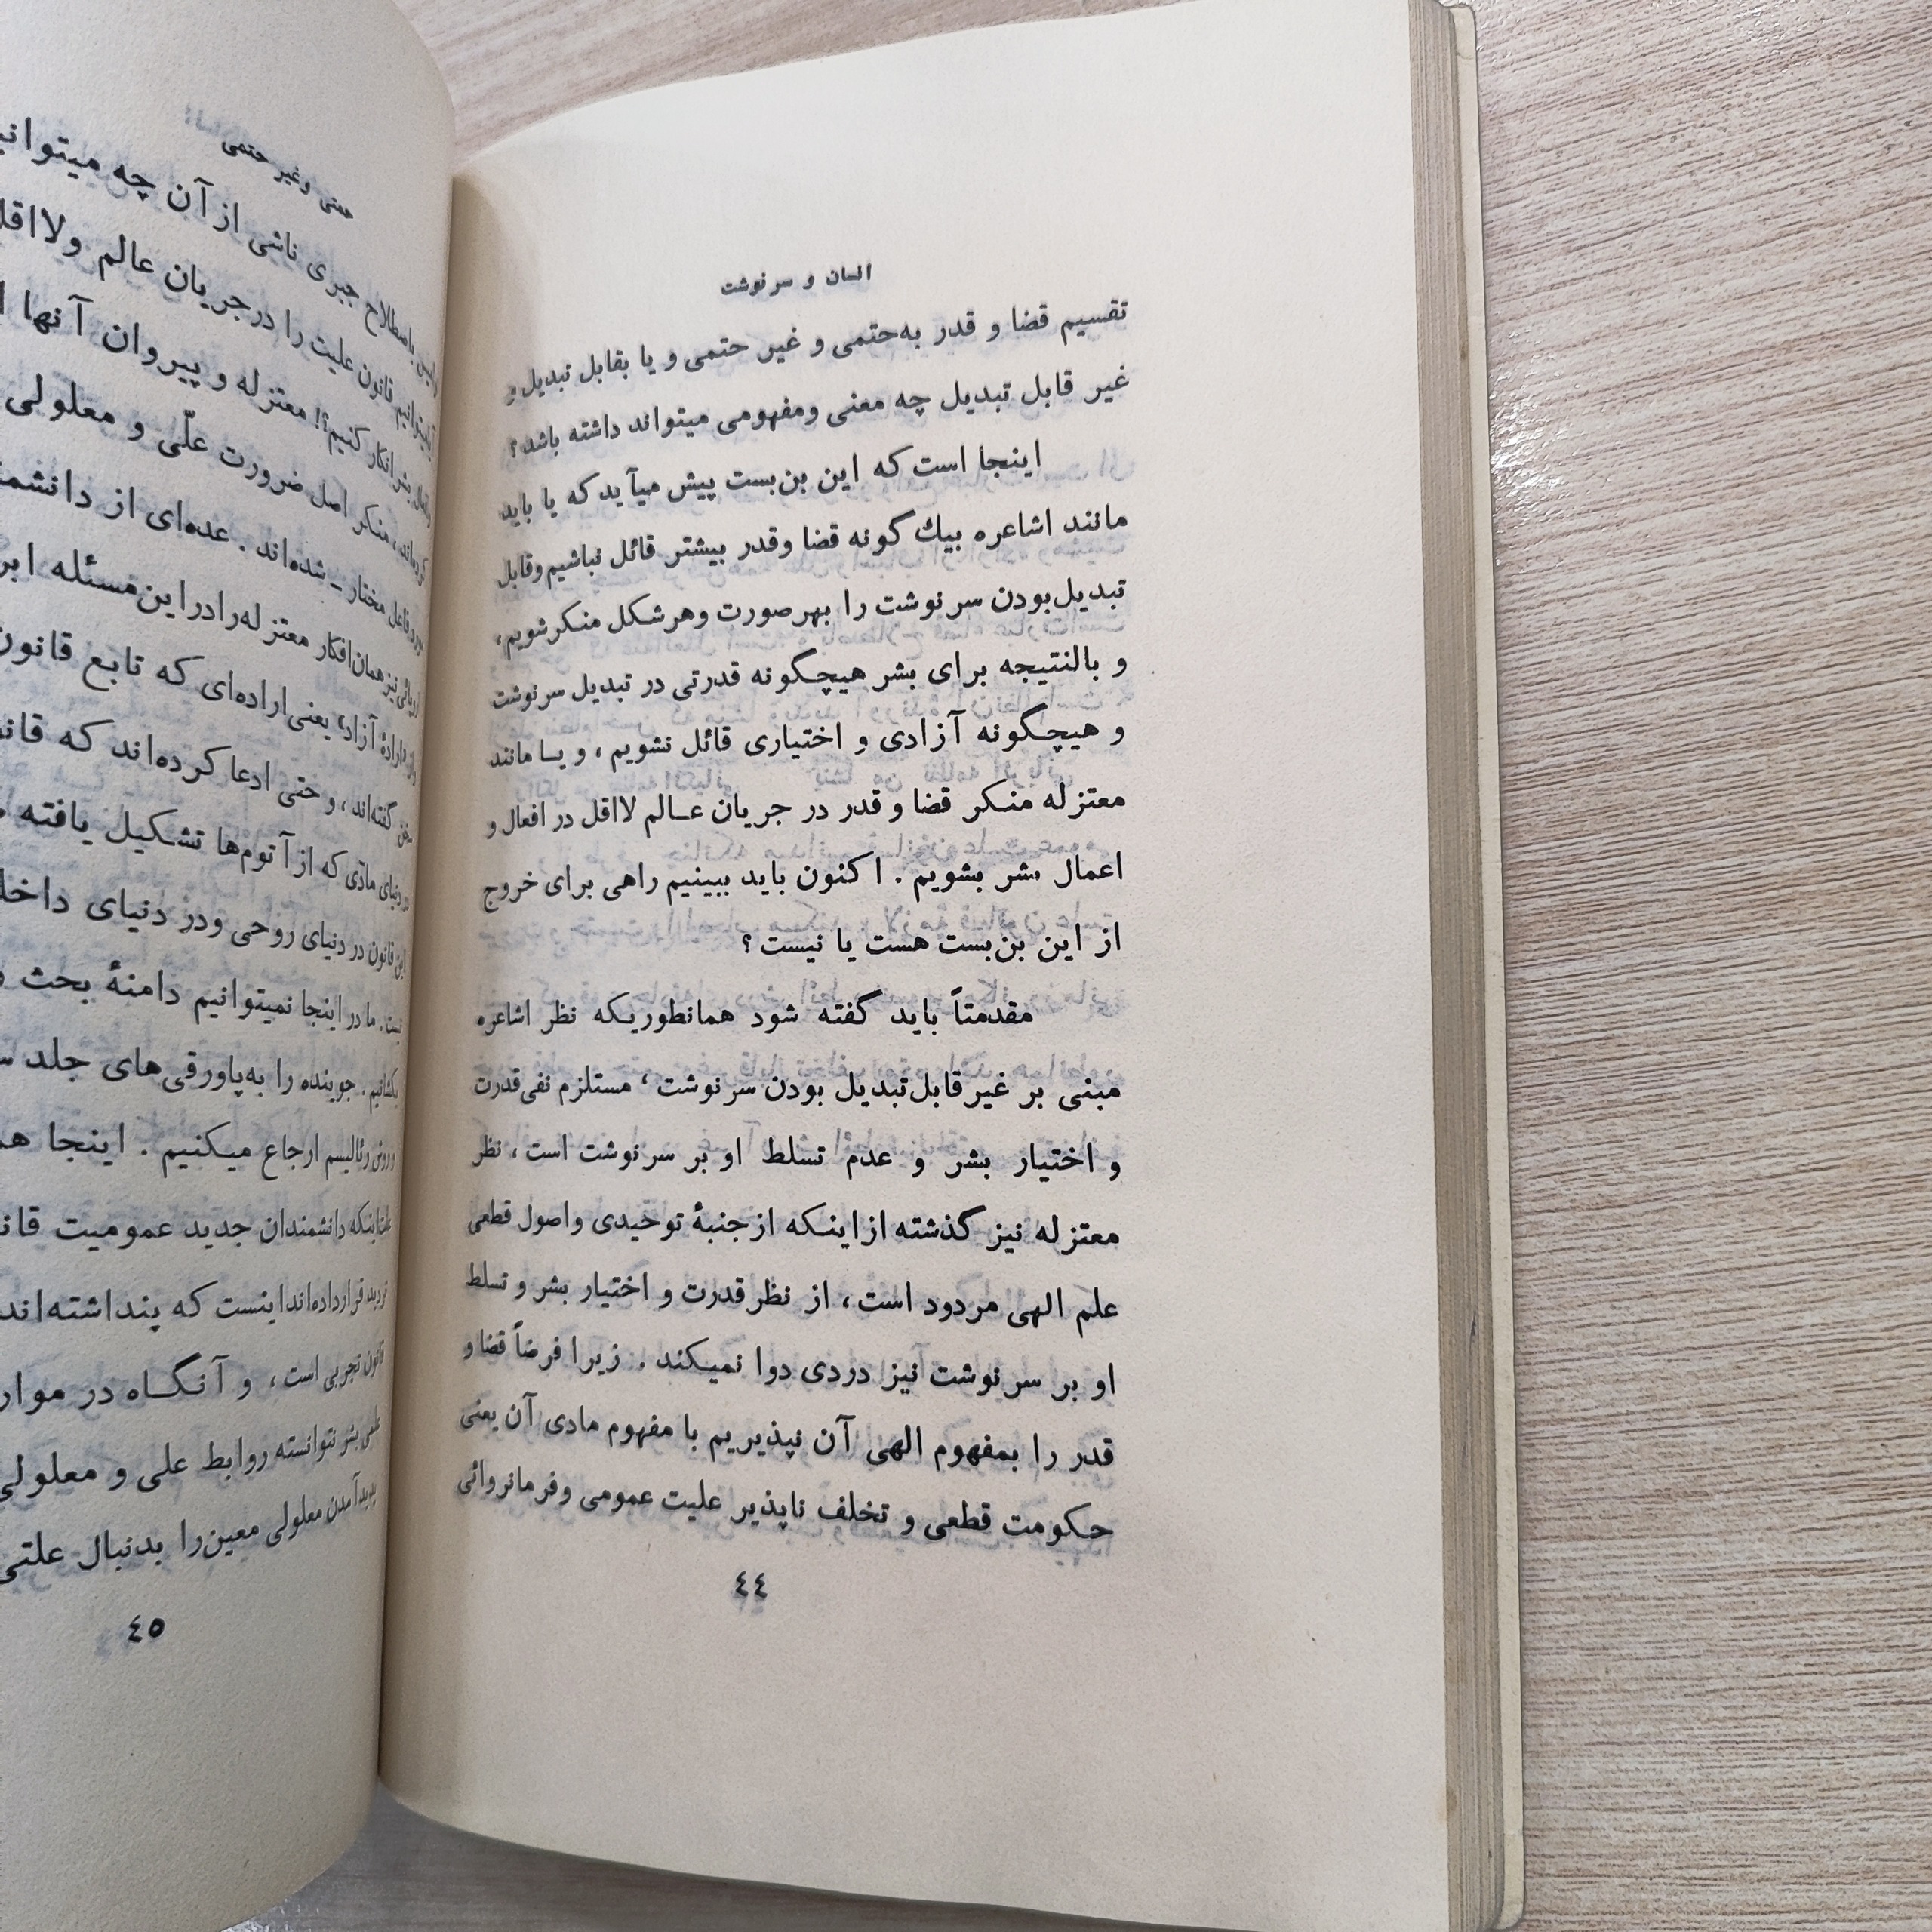 انسان و سرنوشت
تقسیم قضا و قدر به‌حتمی و غیر حتمی و یا بقابل تبدیل و
غیر قابل تبدیل چه معنی ومفهومی میتواند داشته باشد؟
اینجا است که این بن‌بست پیش میآید که یا باید
مانند اشاعره بیك گونه قضا وقدر بیشتر قائل نباشیم وقابل
تبدیل‌بودن سرنوشت را بهرصورت وهرشکل منکرشویم،
و بالنتیجه برای بشر هیچگونه قدرتی در تبدیل سرنوشت
و هیچگونه آزادی و اختیاری قائل نشویم ، و یا مانند
معتزله منکر قضا و قدر در جریان عالم لااقل در افعال و
اعمال بشر بشویم . اکنون باید ببینیم راهی برای خروج
از این بن‌بست هست یا نیست ؟
مقدمتاً باید گفته شود همانطوریکه نظر اشاعره
مبنی بر غیرقابل‌تبدیل بودن سرنوشت ، مستلزم نفی‌قدرت
و اختیار بشر و عدم تسلط او بر سرنوشت است ، نظر
معتزله نیز گذشته ازاینکه ازجنبهٔ توحیدی واصول قطعی
علم الهی مردود است ، از نظرقدرت و اختیار بشر و تسلط
او بر سرنوشت نیز دردی دوا نمیکند . زیرا فرضاً قضا و
قدر را بمفهوم الهی آن نپذیریم با مفهوم مادی آن یعنی
حکومت قطعی و تخلف ناپذیر علیت عمومی وفرمانروائی
٤٤
حتمی وغیر حتمی
باصطلاح جبری ناشی ازآن چه
قانون علیت را درجریان عالم
بشرانکار کنیم؟! معتزله و پیروان آنها
منکر اصل ضرورت علّی و معلولی
فاعل مختار ـ شده‌اند . عده‌ای از
نیزهمان‌افکار معتزله‌رادراین‌مسئله
آزاد، یعنی‌اراده‌ای که تابع قانون
گفته‌اند ، و حتی ادعا کرده‌اند که
دنیای مادّی که ازآتوم‌ها تشکیل یافته
این قانون در دنیای روحی ودر دنیای
نیست . ما در اینجا نمیتوانیم دامنهٔ بحث
بکشانیم . جوینده را به‌پاورقی‌های جلد
و روش رئالیسم ارجاع میکنیم . اینجا
دانشمندان جدید عمومیت
تردید قرارداده‌اند اینست که پنداشته‌اند
قانون تجربی است ، و آنگاه در
علمی بشر نتوانسته روابط علی و معلولی
پدیدآمدن معلولی معین‌را بدنبال علتی
٤٥